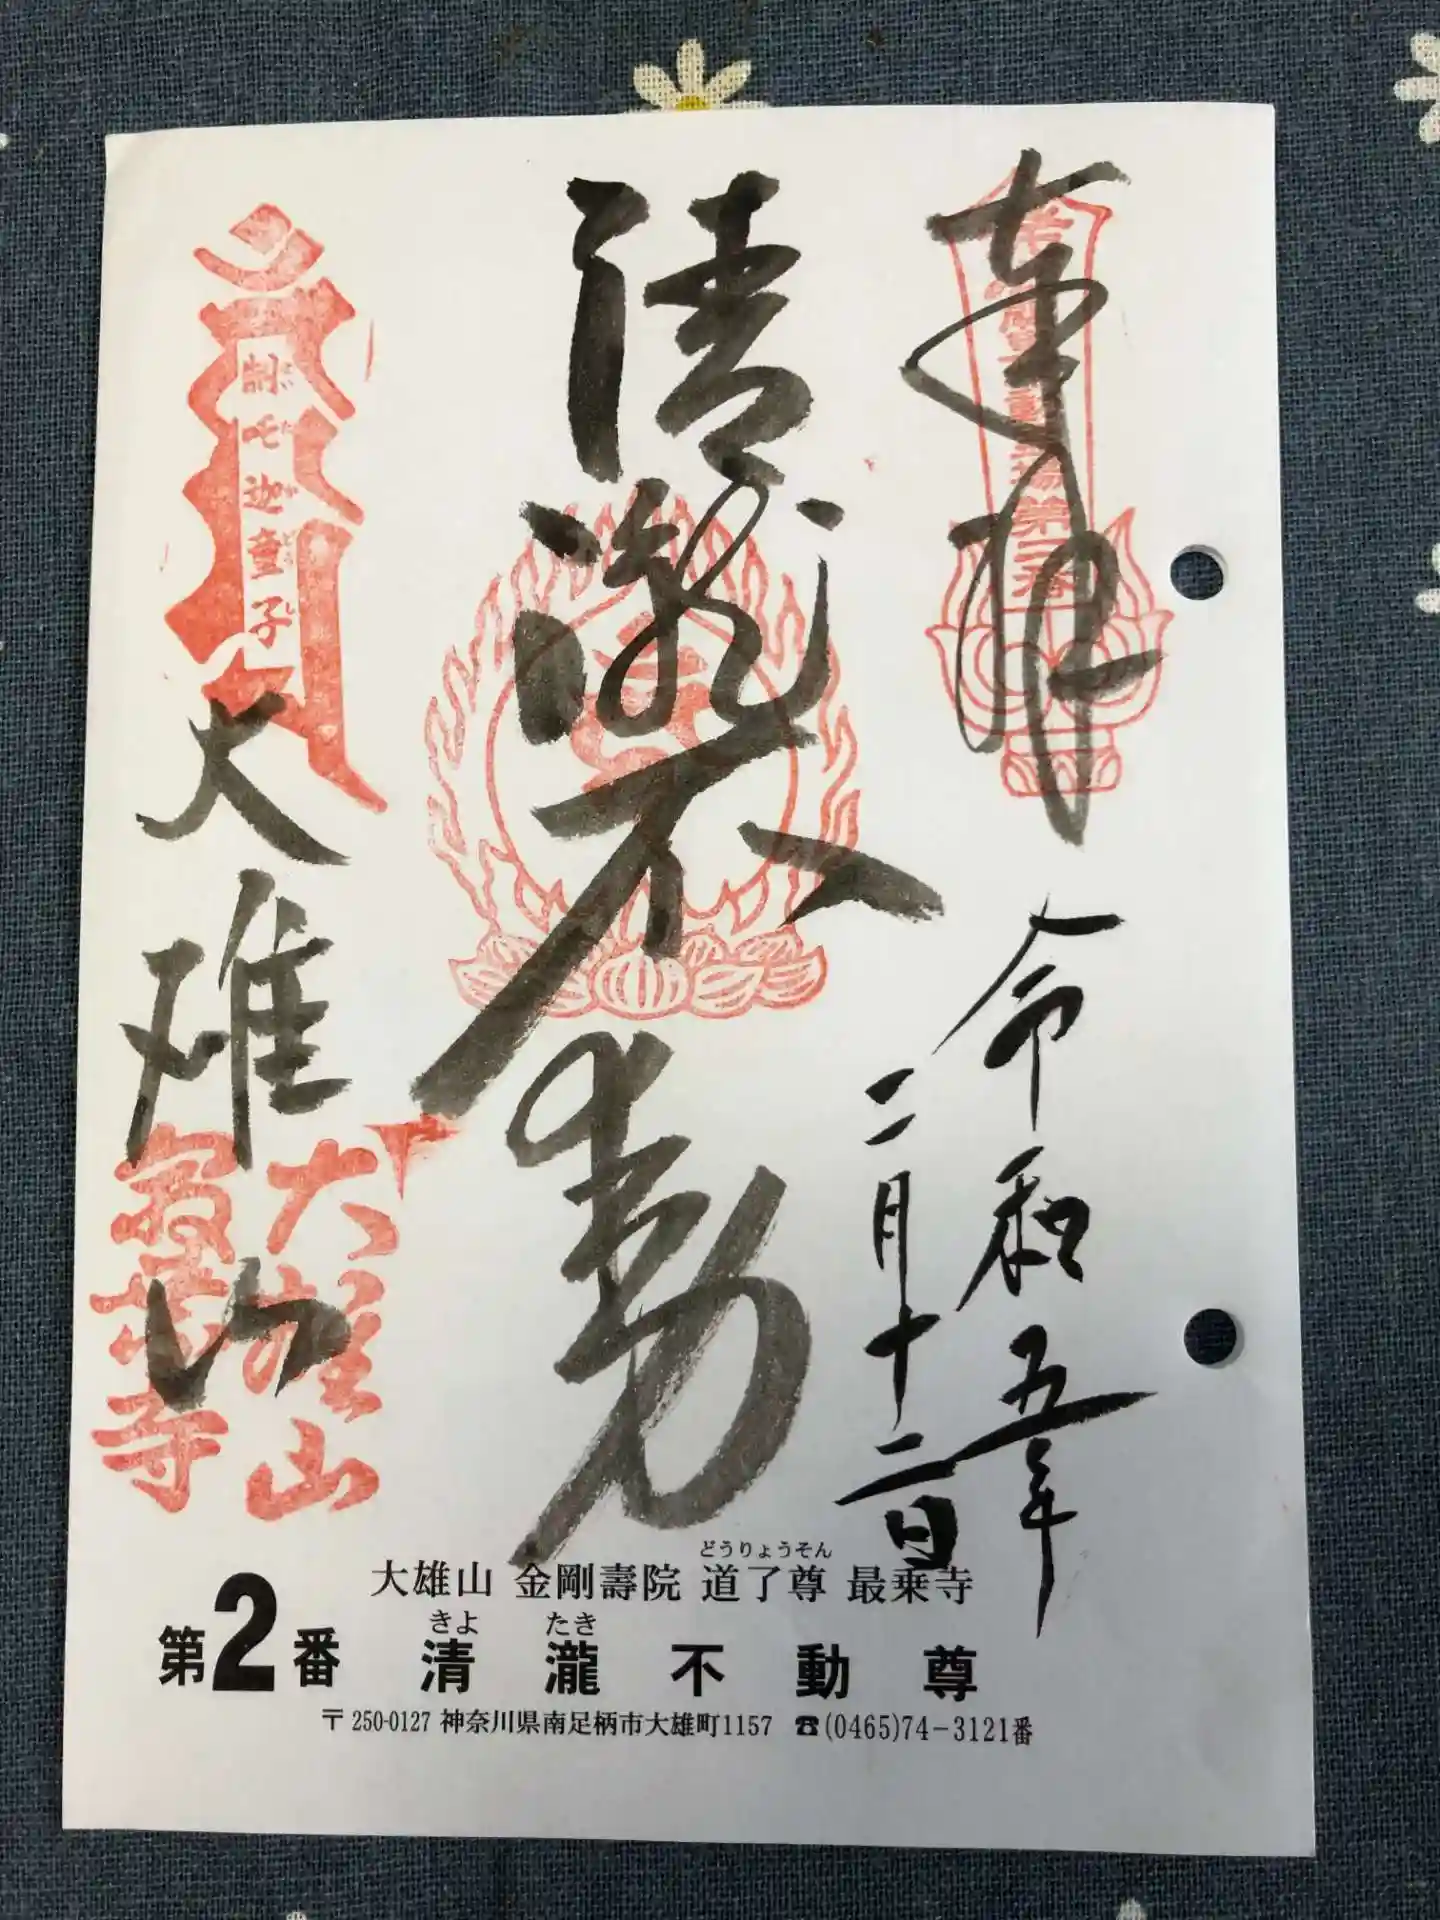 奉拝
令和五年
二月十二日
清瀧不動
制吒迦童子
せいたかどうじ
大雄山
大雄山
最乗寺
どうりょうそん
大雄山 金剛壽院 道了尊 最乗寺
きよ たき
第2番 清瀧不動尊
〒250-0127 神奈川県南足柄市大雄町1157 ☎(0465)74-3121番